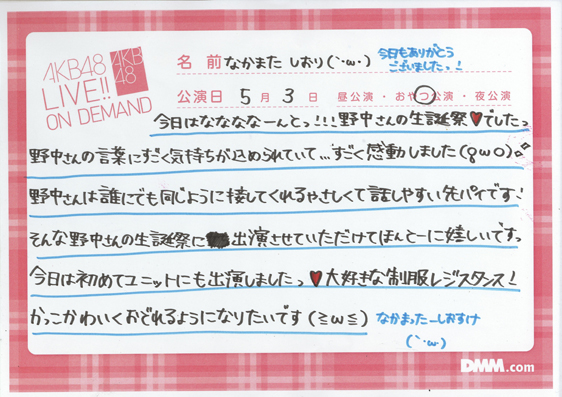 AKB48
LIVE!!
ON DEMAND
AKB
48
名前 なかまた しおり(`･ω･)
今日もありがとう
ございましたっ!
公演日 5月3日 昼公演・おやつ公演・夜公演
今日はなななな～んとっ!!!野中さんの生誕祭♥でしたっ
野中さんの言葉にすごく気持ちが込められていて…すごく感動しました(8ωO)。
野中さんは誰にでも同じように接してくれるやさしくて話しやすい先パイです!
そんな野中さんの生誕祭に出演させていただけてほんとーに嬉しいですっ
今日は初めてユニットにも出演しましたっ♥大好きな制服レジスタンス!
かっこかわいくおどれるようになりたいです(≧ω≦)
なかまったーしおすけ
(`･ω･)
DMM.com